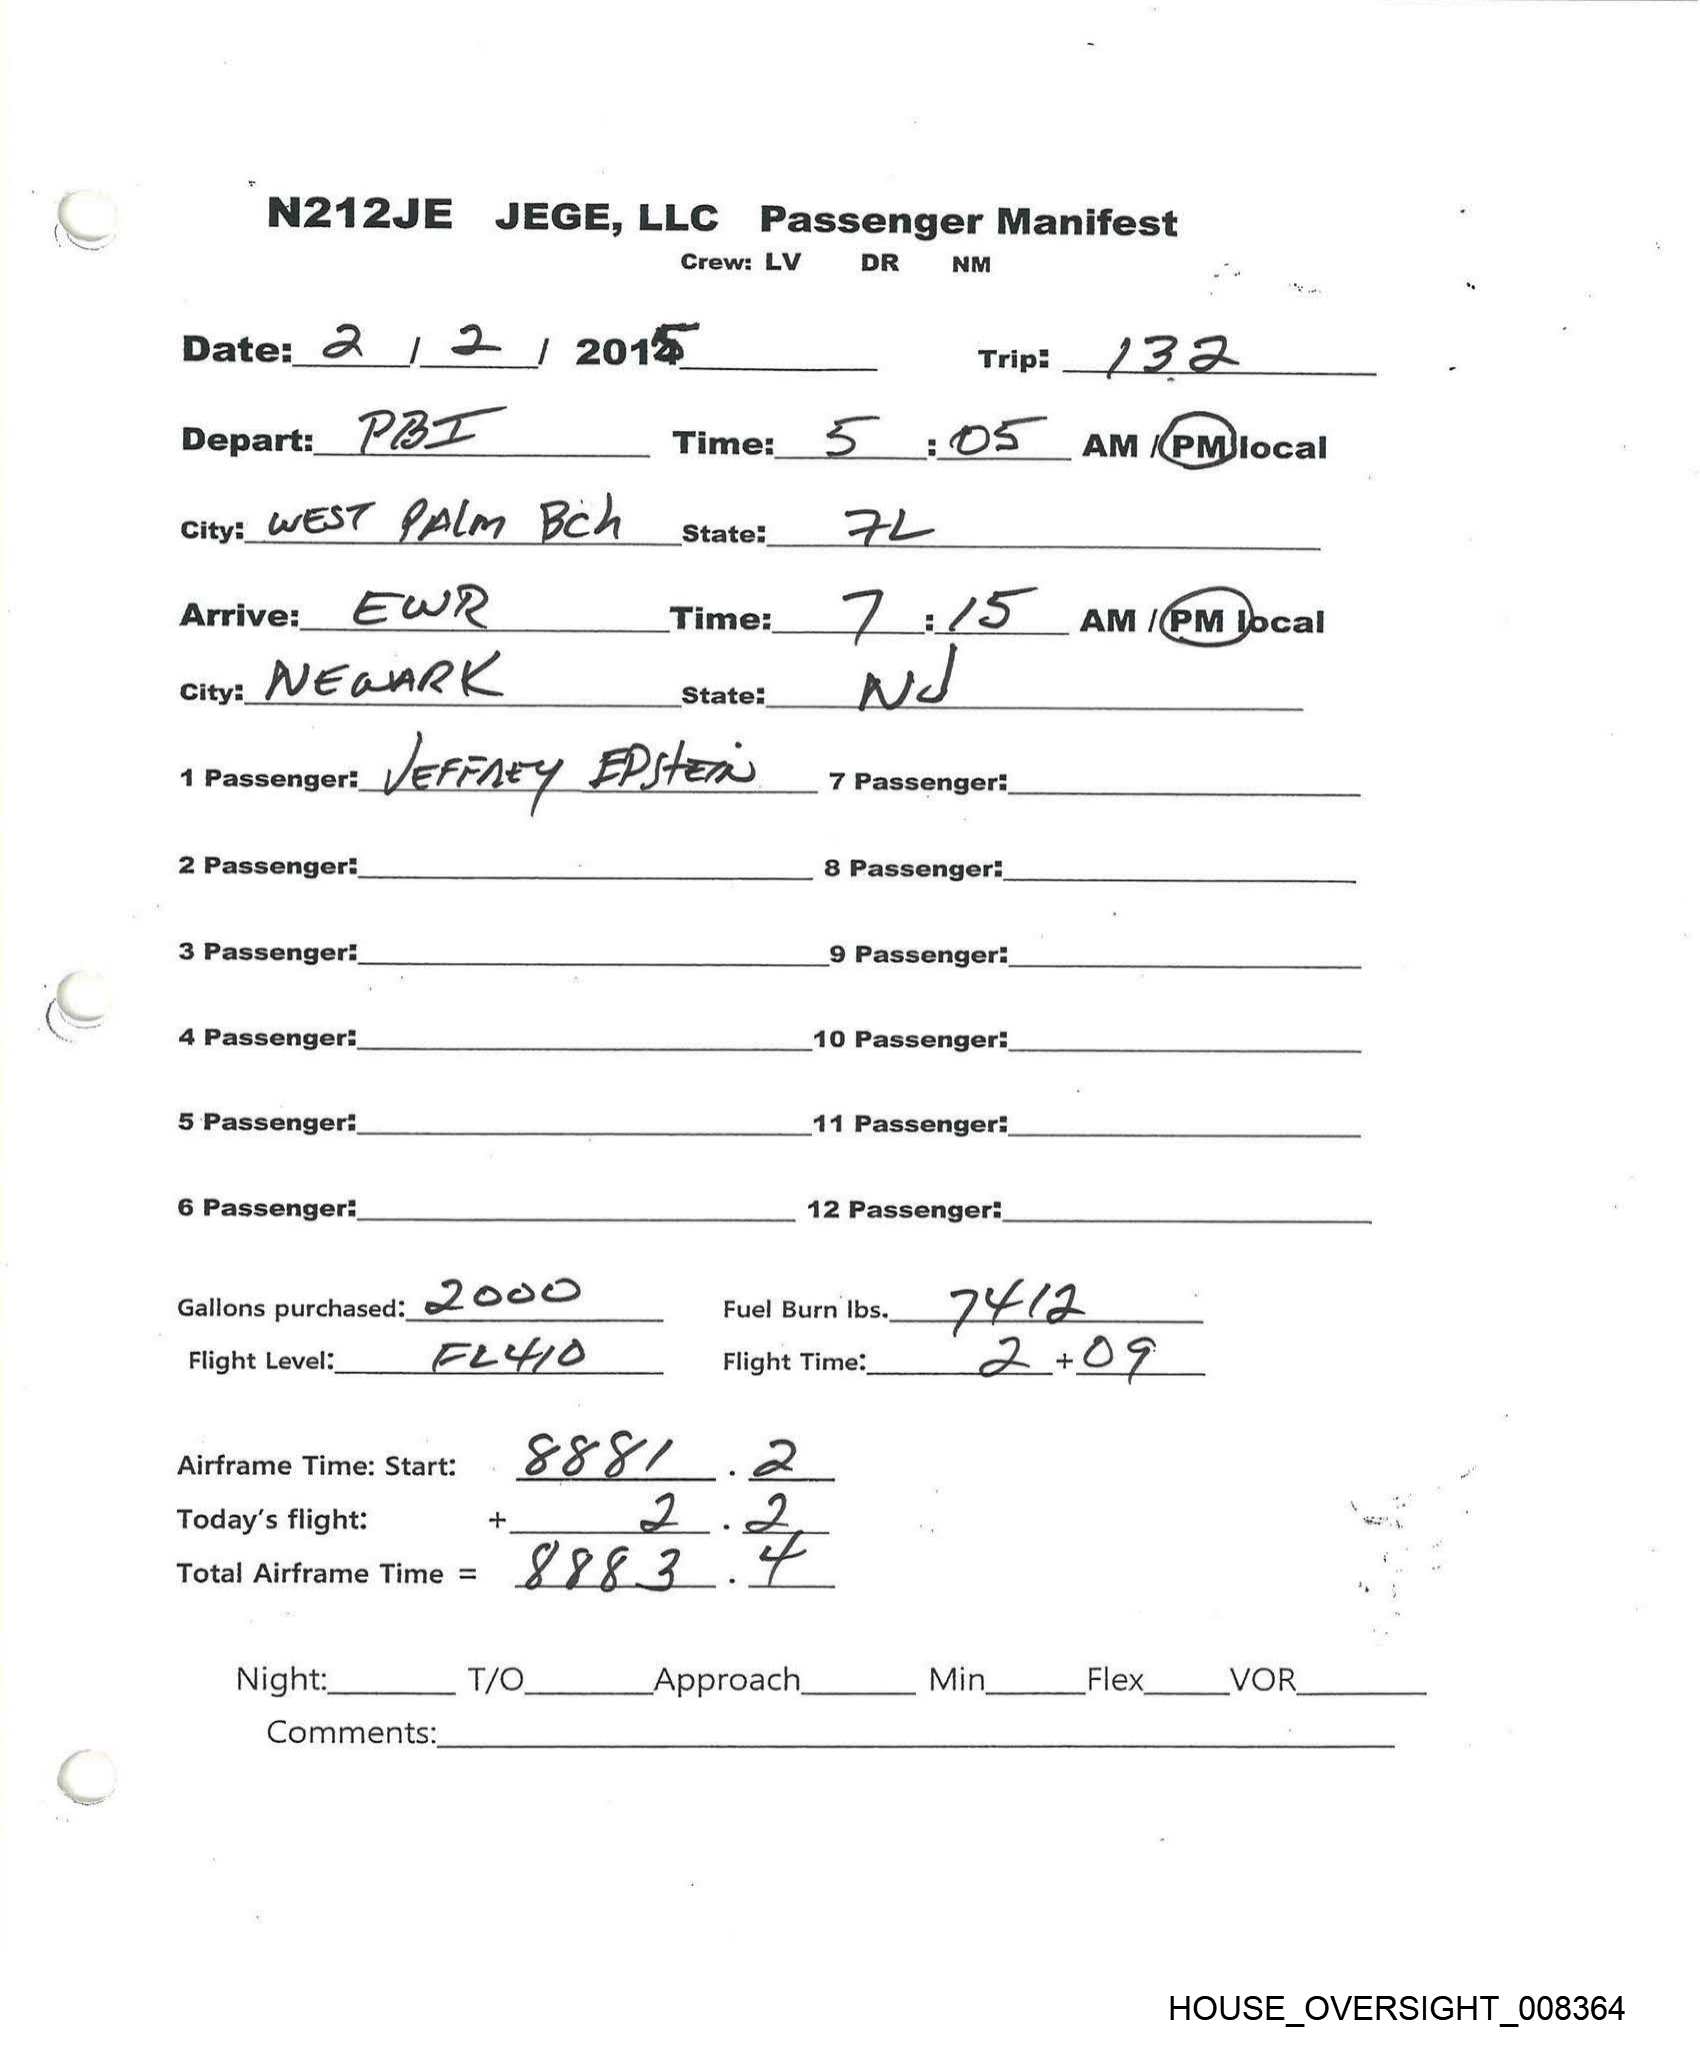 N212JE JEGE, LLC Passenger Manifest
Crew: LV DR NM
Date: 2 / 2 / 2015 Trip: 132
Depart: PBI Time: 5 : 05 AM / PM local
City: WEST PALM BCh State: FL
Arrive: EWR Time: 7 : 15 AM / PM local
City: NEWARK State: NJ
1 Passenger: JEFFREY EPSTEIN 7 Passenger:
2 Passenger: 8 Passenger:
3 Passenger: 9 Passenger:
4 Passenger: 10 Passenger:
5 Passenger: 11 Passenger:
6 Passenger: 12 Passenger:
Gallons purchased: 2000 Fuel Burn lbs. 7412
Flight Level: FL410 Flight Time: 2 + 09
Airframe Time: Start: 8881 . 2
Today's flight: + 2 . 2
Total Airframe Time = 8883 . 4
Night: T/O Approach Min Flex VOR
Comments:
HOUSE_OVERSIGHT_008364